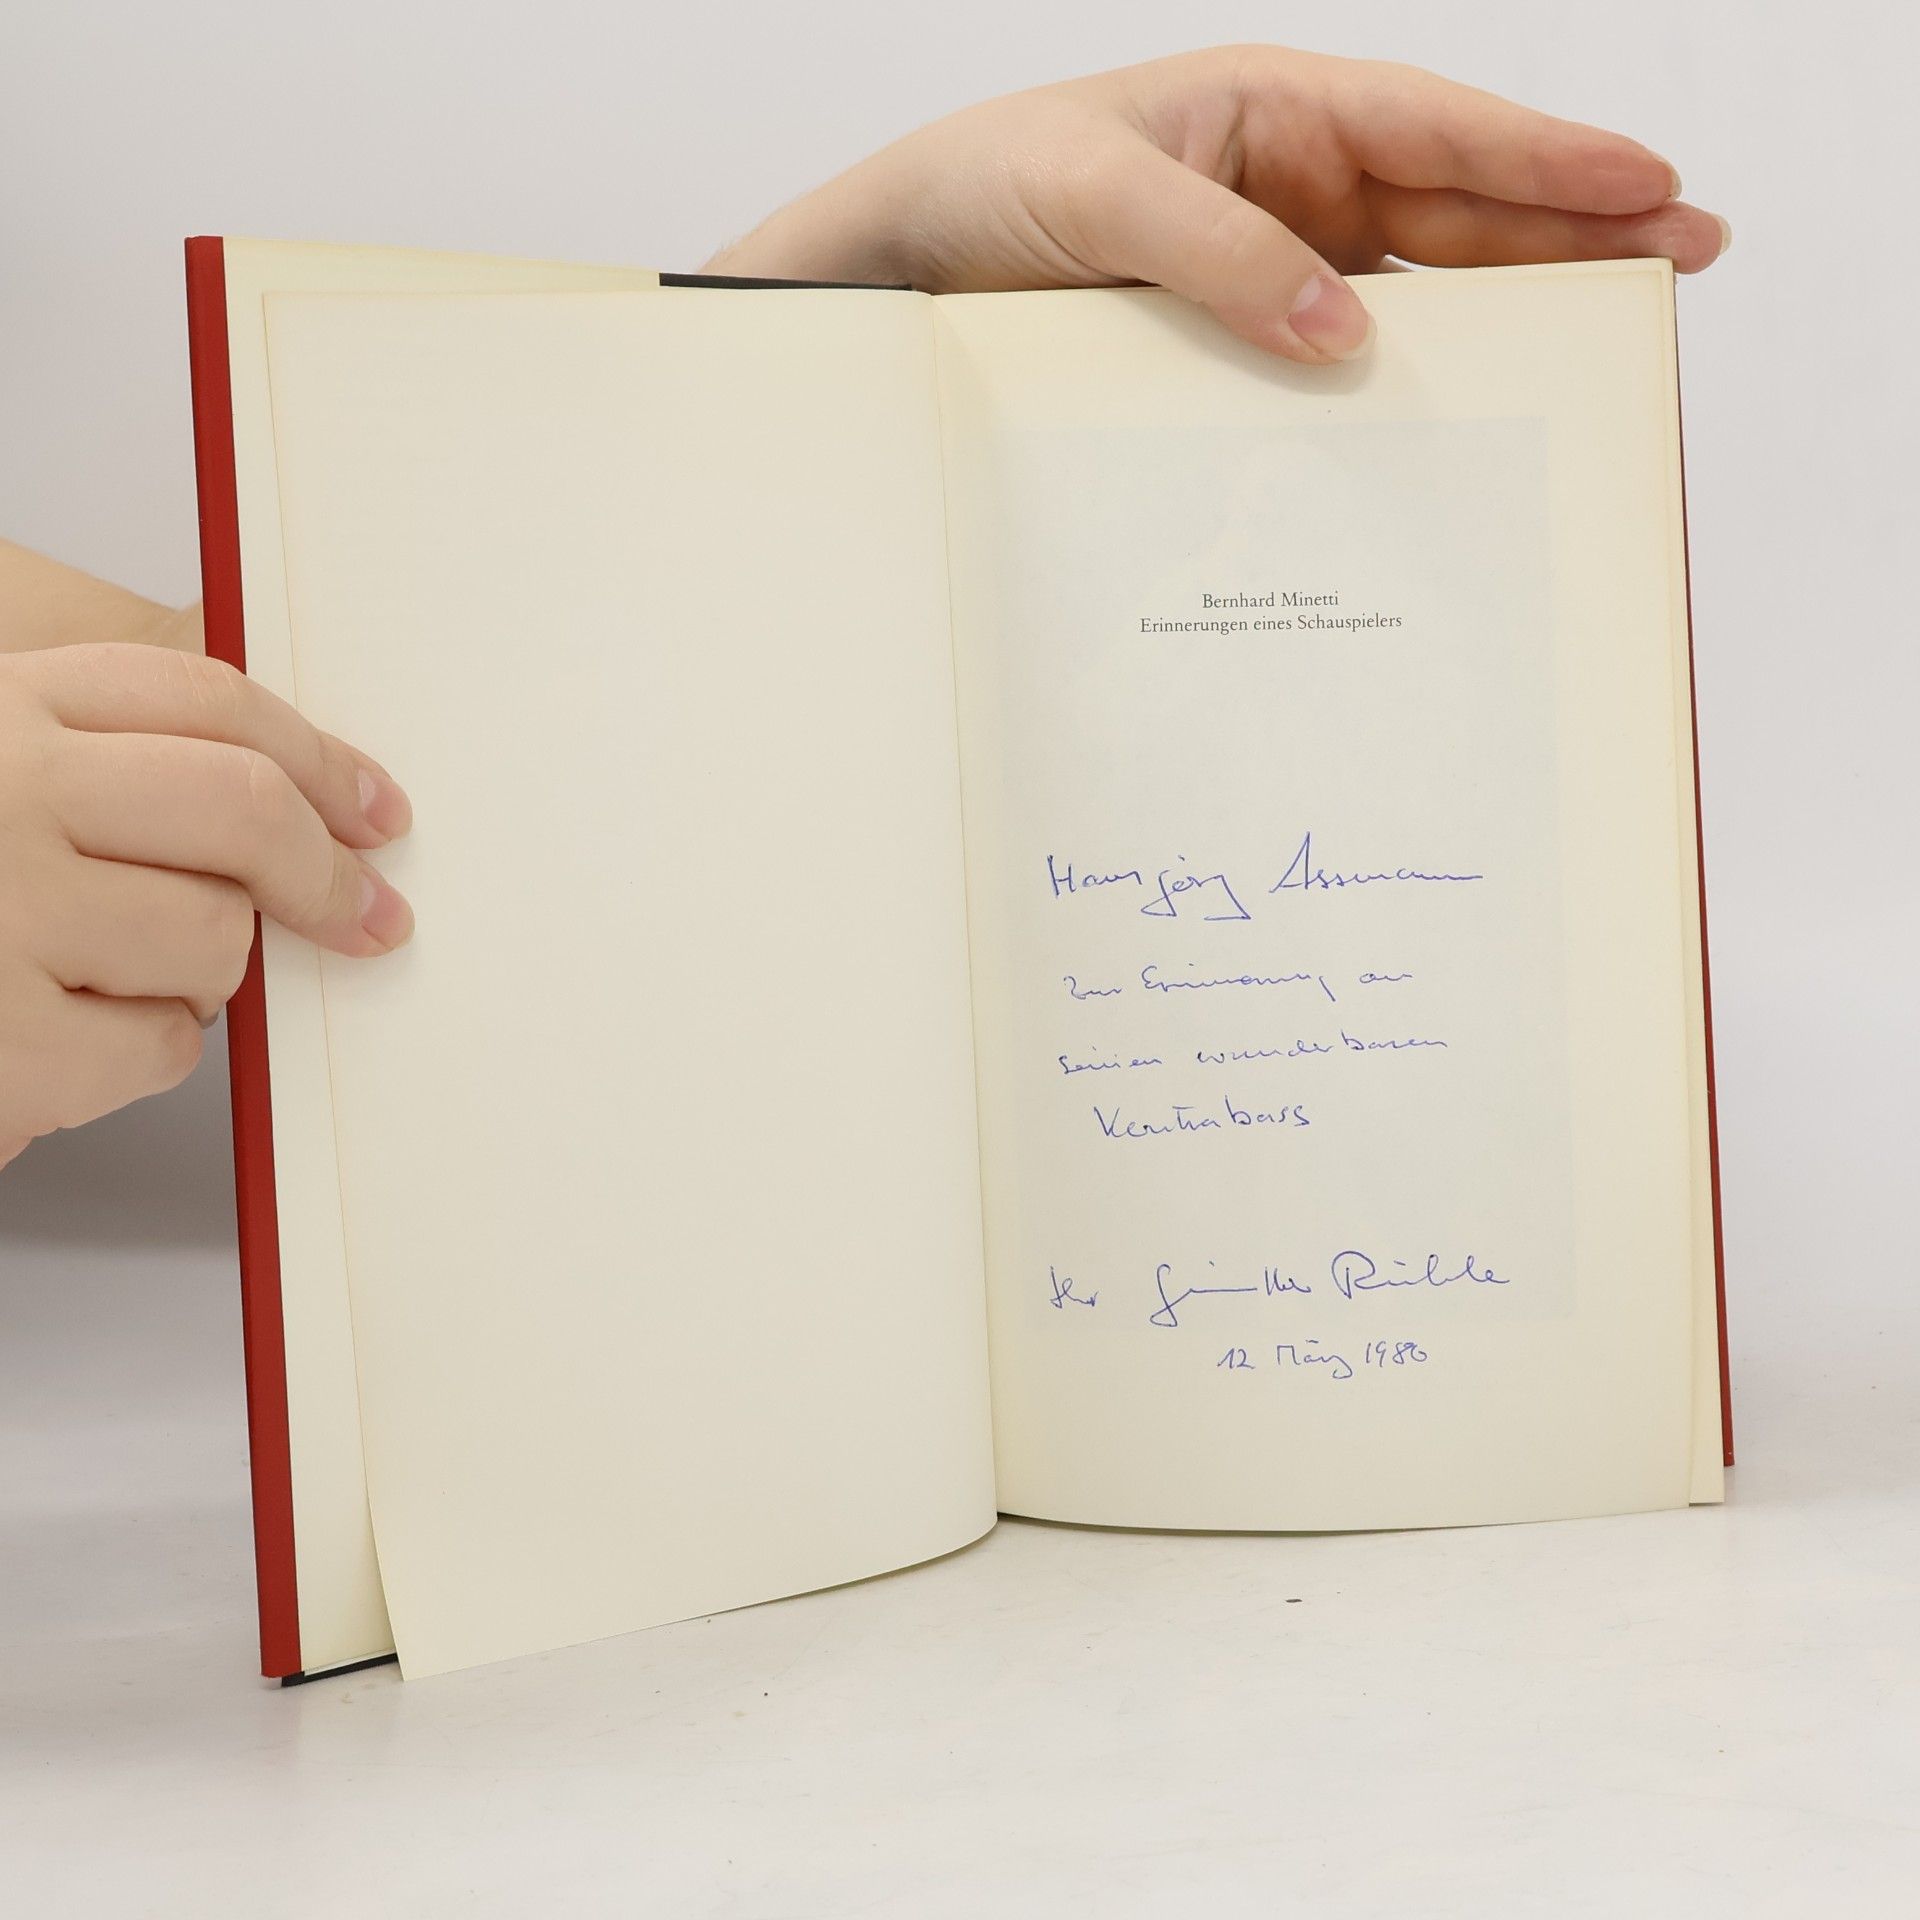 Bernhard Minetti
Erinnerungen eines Schauspielers
Hansjörg Assmann
zur Erinnerung an
seinen wunderbaren
Kontrabass
Ihr Günther Rühle
12 März 1986